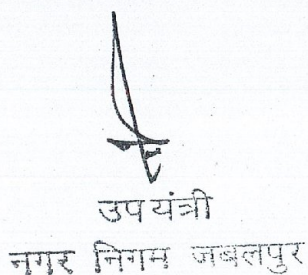 उपयंत्री
नगर निगम जबलपुर